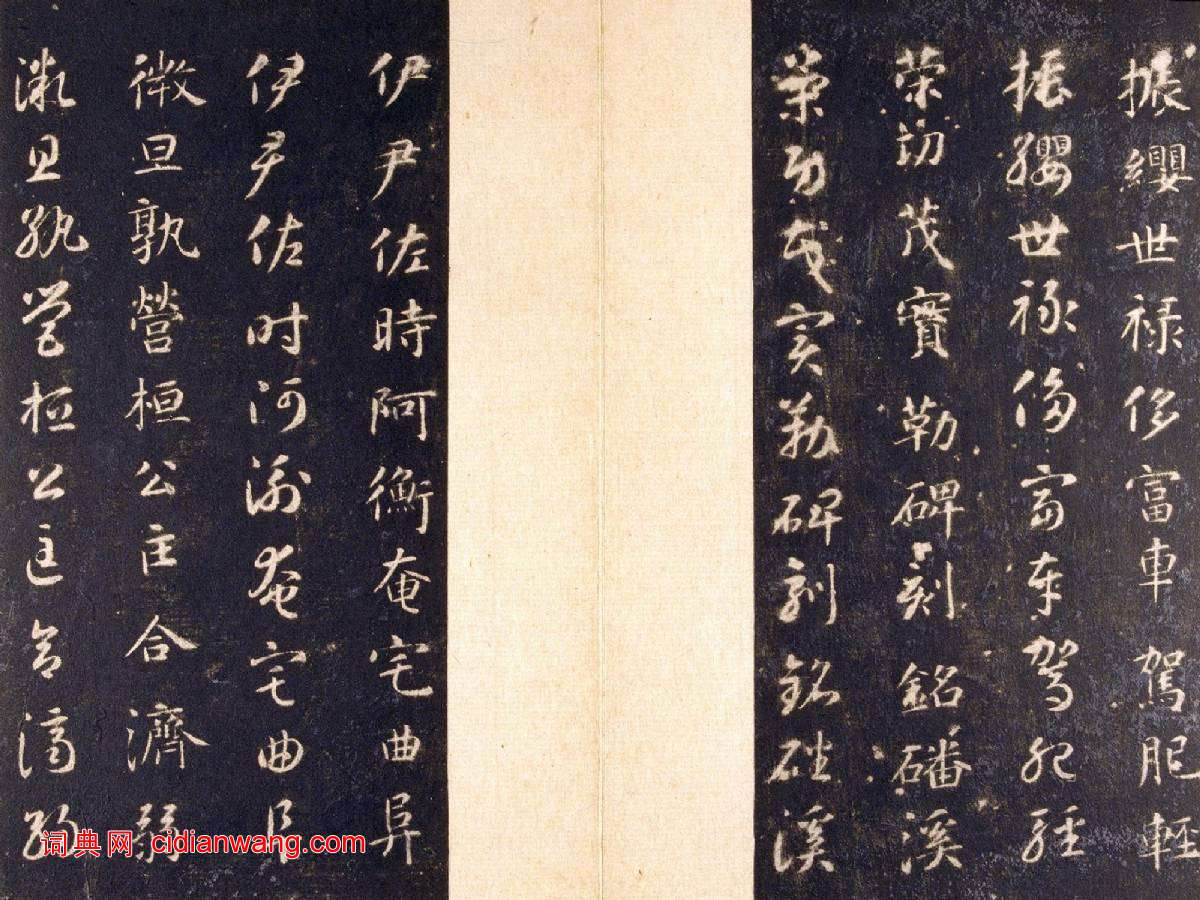 振纓世禄侈富車駕肥輕
振纓世禄侈富車駕肥輕
策功茂實勒碑刻銘磻溪
策功茂實勒碑刻銘磻溪
伊尹佐時阿衡奄宅曲阜
伊尹佐時阿衡奄宅曲阜
微旦孰營桓公匡合濟弱
微旦孰營桓公匡合濟弱
词典网 cidianwang.com